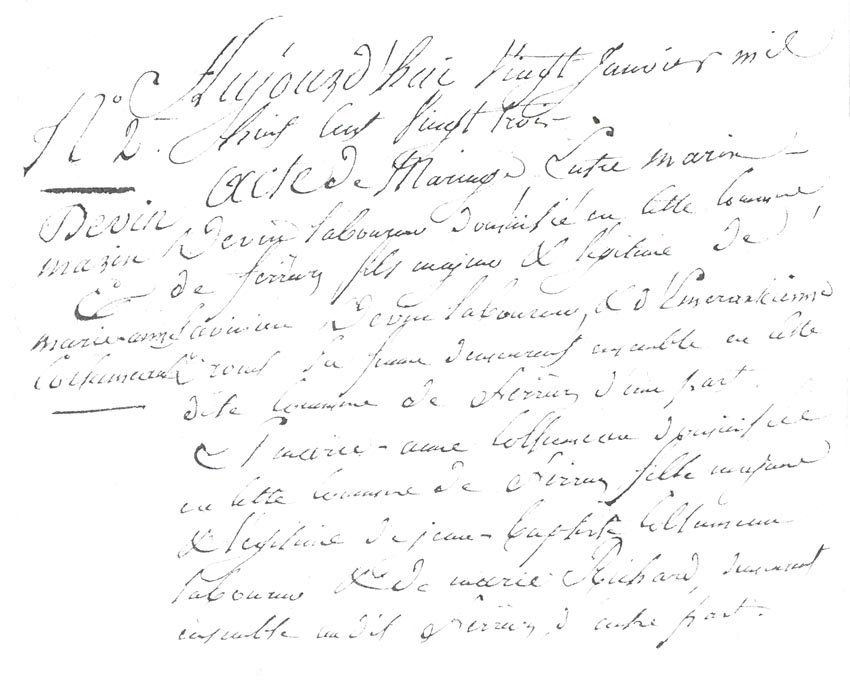 Aujourd'hui vingt Janvier mil
N° 2. huit cent vingt trois.
acte de Mariage Entre marin
Devin Devin laboureur domicilié en cette Commune
marin de ferrieres fils majeur & légitime de
&
marie-anne Devin laboureur, & d'Emerantienne
Cottumeau sa femme demeurant ensemble en cette
dite Commune de d'une part.
Et marie-anne Cottumeau domiciliée
en cette Commune de fille majeure
& légitime de jean-baptiste Cottumeau
laboureur & de marie Richard, demeurant
ensemble audit d'autre part.